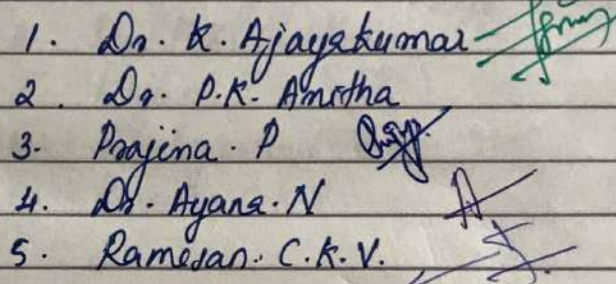 1. Dr. K. Ajayakumar
2. Dr. P.K. Anitha
3. Prajina. P
4. Dr. Ayana. N
5. Ramesan. C.K.V.